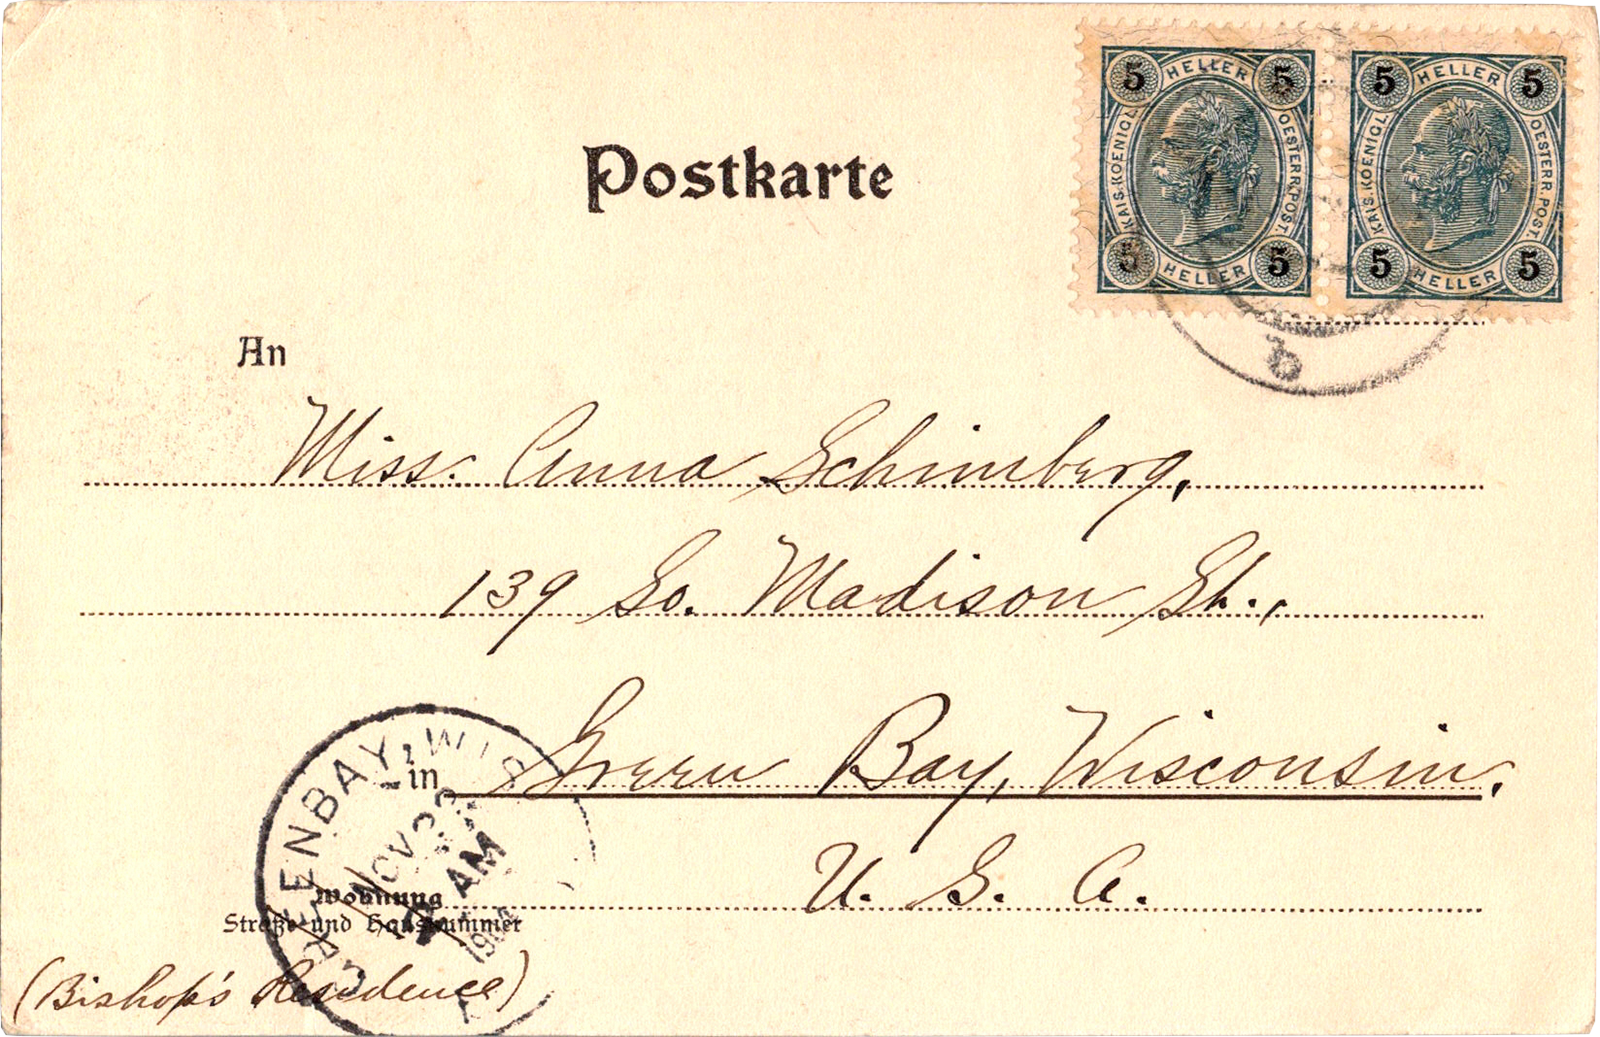 Postkarte
5 HELLER 5
KAIS. KOENIGL. OESTERR. POST.
5 HELLER 5
5 HELLER 5
KAIS. KOENIGL. OESTERR. POST.
5 HELLER 5
b
An
Miss. Anna Schimberg,
139 So. Madison St.,
in Green Bay, Wisconsin.
U. S. A.
Wohnung
Straße und Hausnummer
(Bishop's Residence)
GREENBAY, WIS
NOV
AM